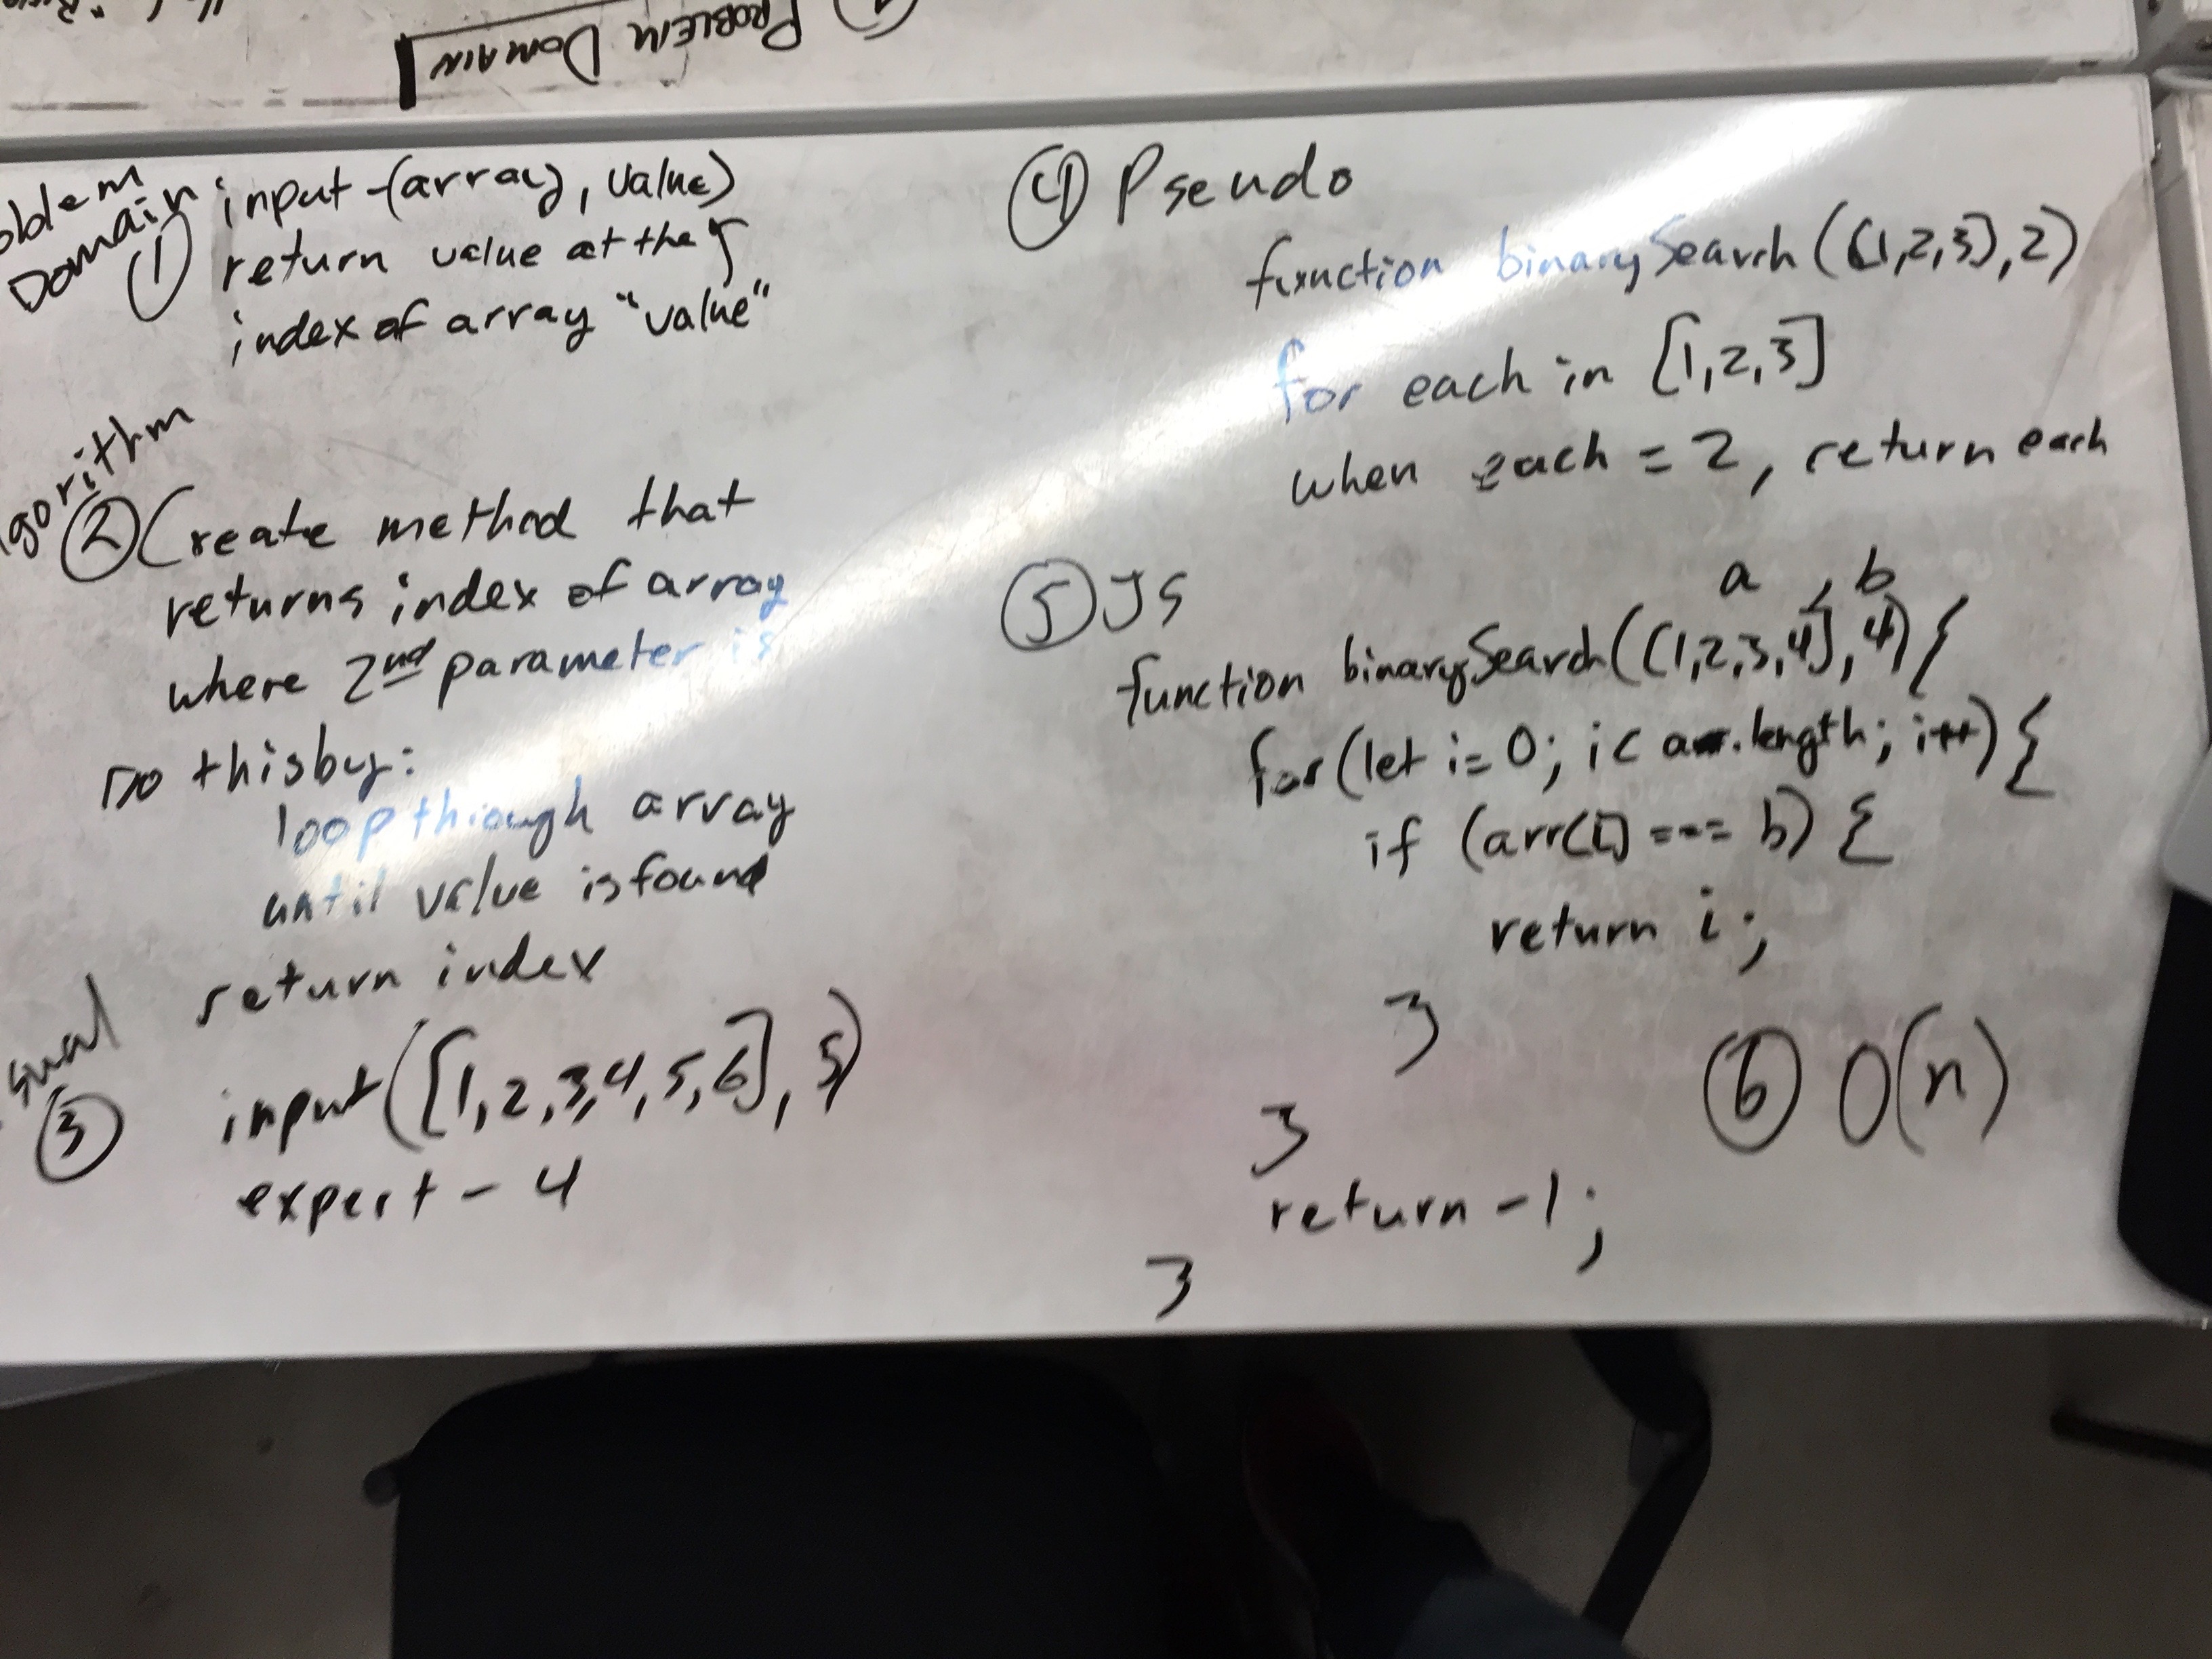 PROBLEM DOMAIN
Domain
① input -(array), value)
return value at the
index of array "value"
② Create method that
returns index of array
where 2nd parameter is
Do this by:
loop through array
until value is found
return index
③ input([1,2,3,4,5,6], 5)
expect - 4
④ Pseudo
function binarySearch([1,2,3],2)
for each in [1,2,3]
when each = 2, return each
⑤ JS
a , b
function binarySearch([1,2,3,4], 4) {
for(let i=0; i< arr.length; i++) {
if (arr[i] === b) {
return i;
}
}
return -1;
}
⑥ O(n)